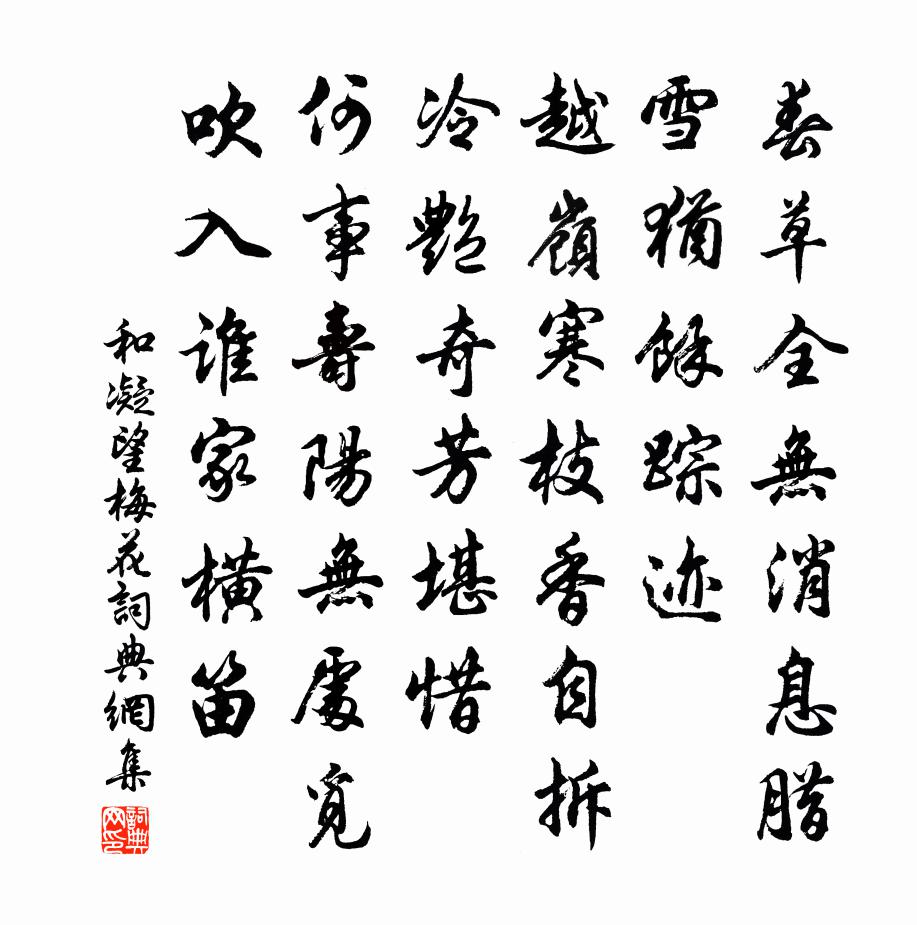 春草全無消息腊
雪猶餘踪迹
越嶺寒枝香自拆
冷艷奇芳堪惜
何事壽陽無處覓
吹入誰家橫笛
和凝望梅花詞典網集
詞典网印